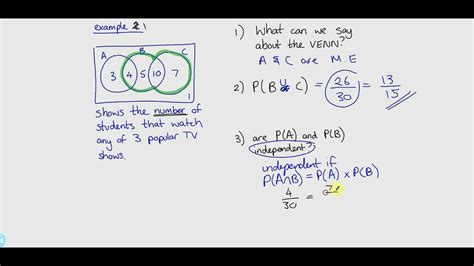 example 2 1
A B C
3 4 5 10 7
1
shows the number of
students that watch
any of 3 popular TV
shows.
1) What can we say
about the VENN?
A & C are M.E
2) P(B U C) = 26/30 = 13/15
3) are P(A) and P(B)
independent?
independent if
P(A∩B) = P(A) x P(B)
4/30 = 7/